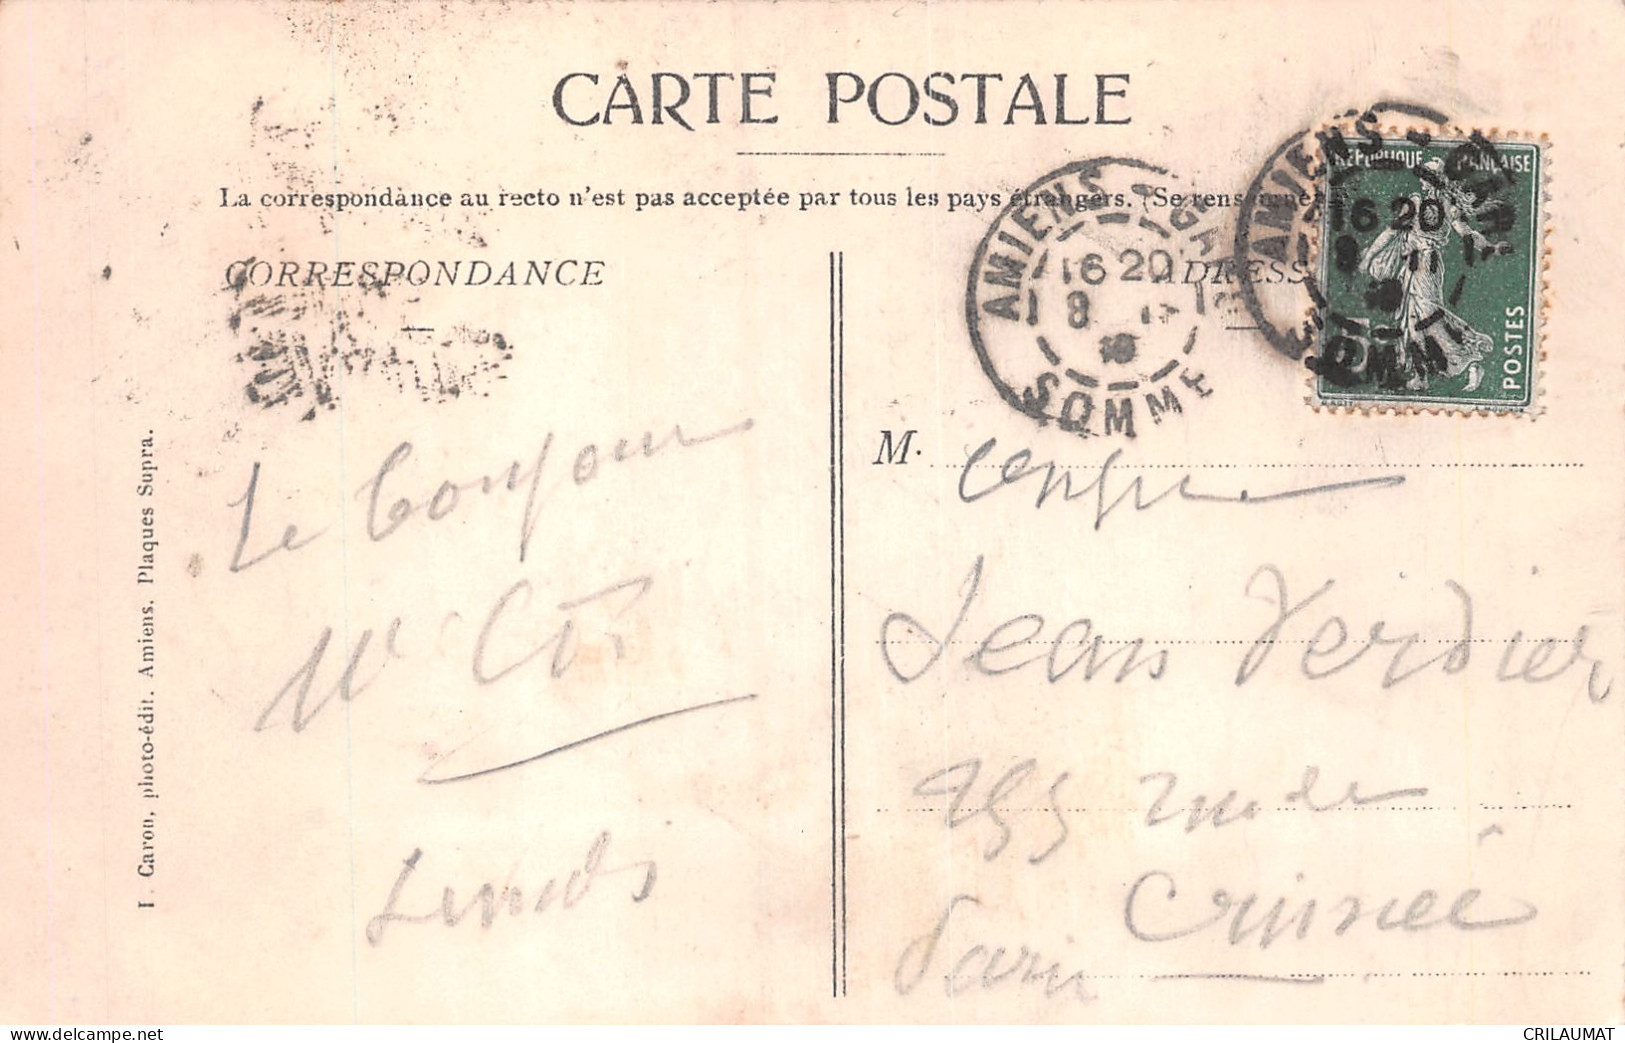 CARTE POSTALE
La correspondance au recto n'est pas acceptée par tous les pays étrangers. (Se renseigner
CORRESPONDANCE
ADRESSE
AMIENS GARE
16 20
8
SOMME
AMIENS GARE
16 20
8 11
SOMME
RÉPUBLIQUE FRANÇAISE
POSTES
Le bonjour
Lundi
M.
Jean Verdier
155 rue de
Crimée
Paris
L. Caron, photo-édit. Amiens. Plaques Supra.
delcampe.net
CRILAUMAT